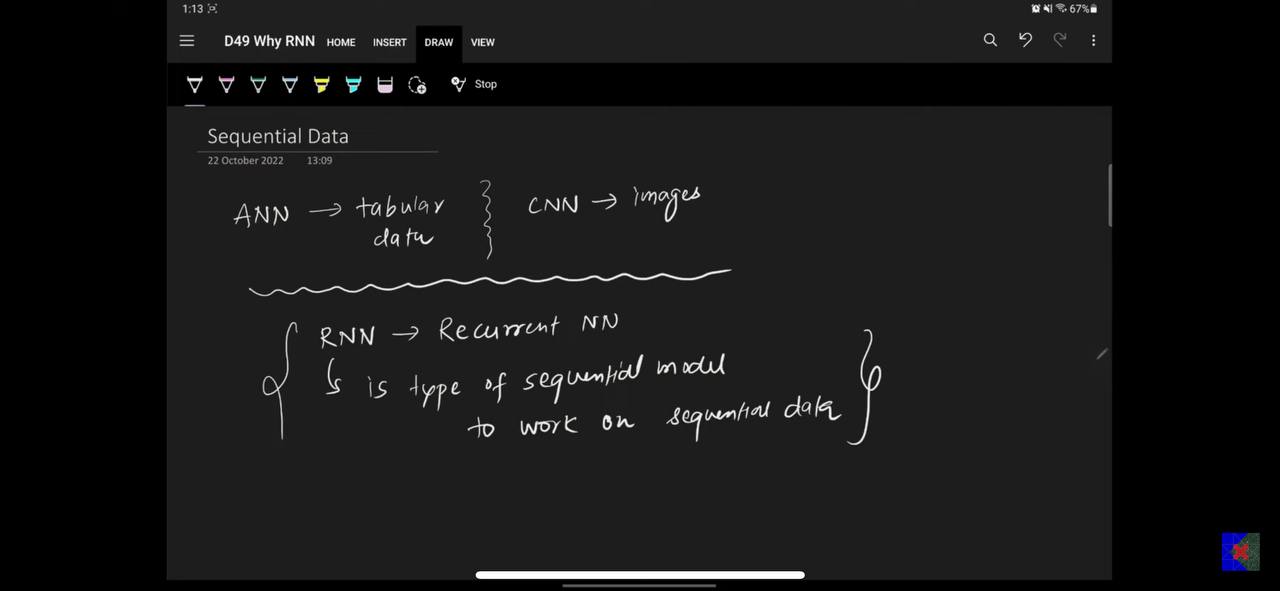 1:13
67%
D49 Why RNN HOME INSERT DRAW VIEW
Stop
Sequential Data
22 October 2022 13:09
ANN → tabular data
CNN → images
RNN → Recurrent NN
↳ is type of sequential model
to work on sequential data